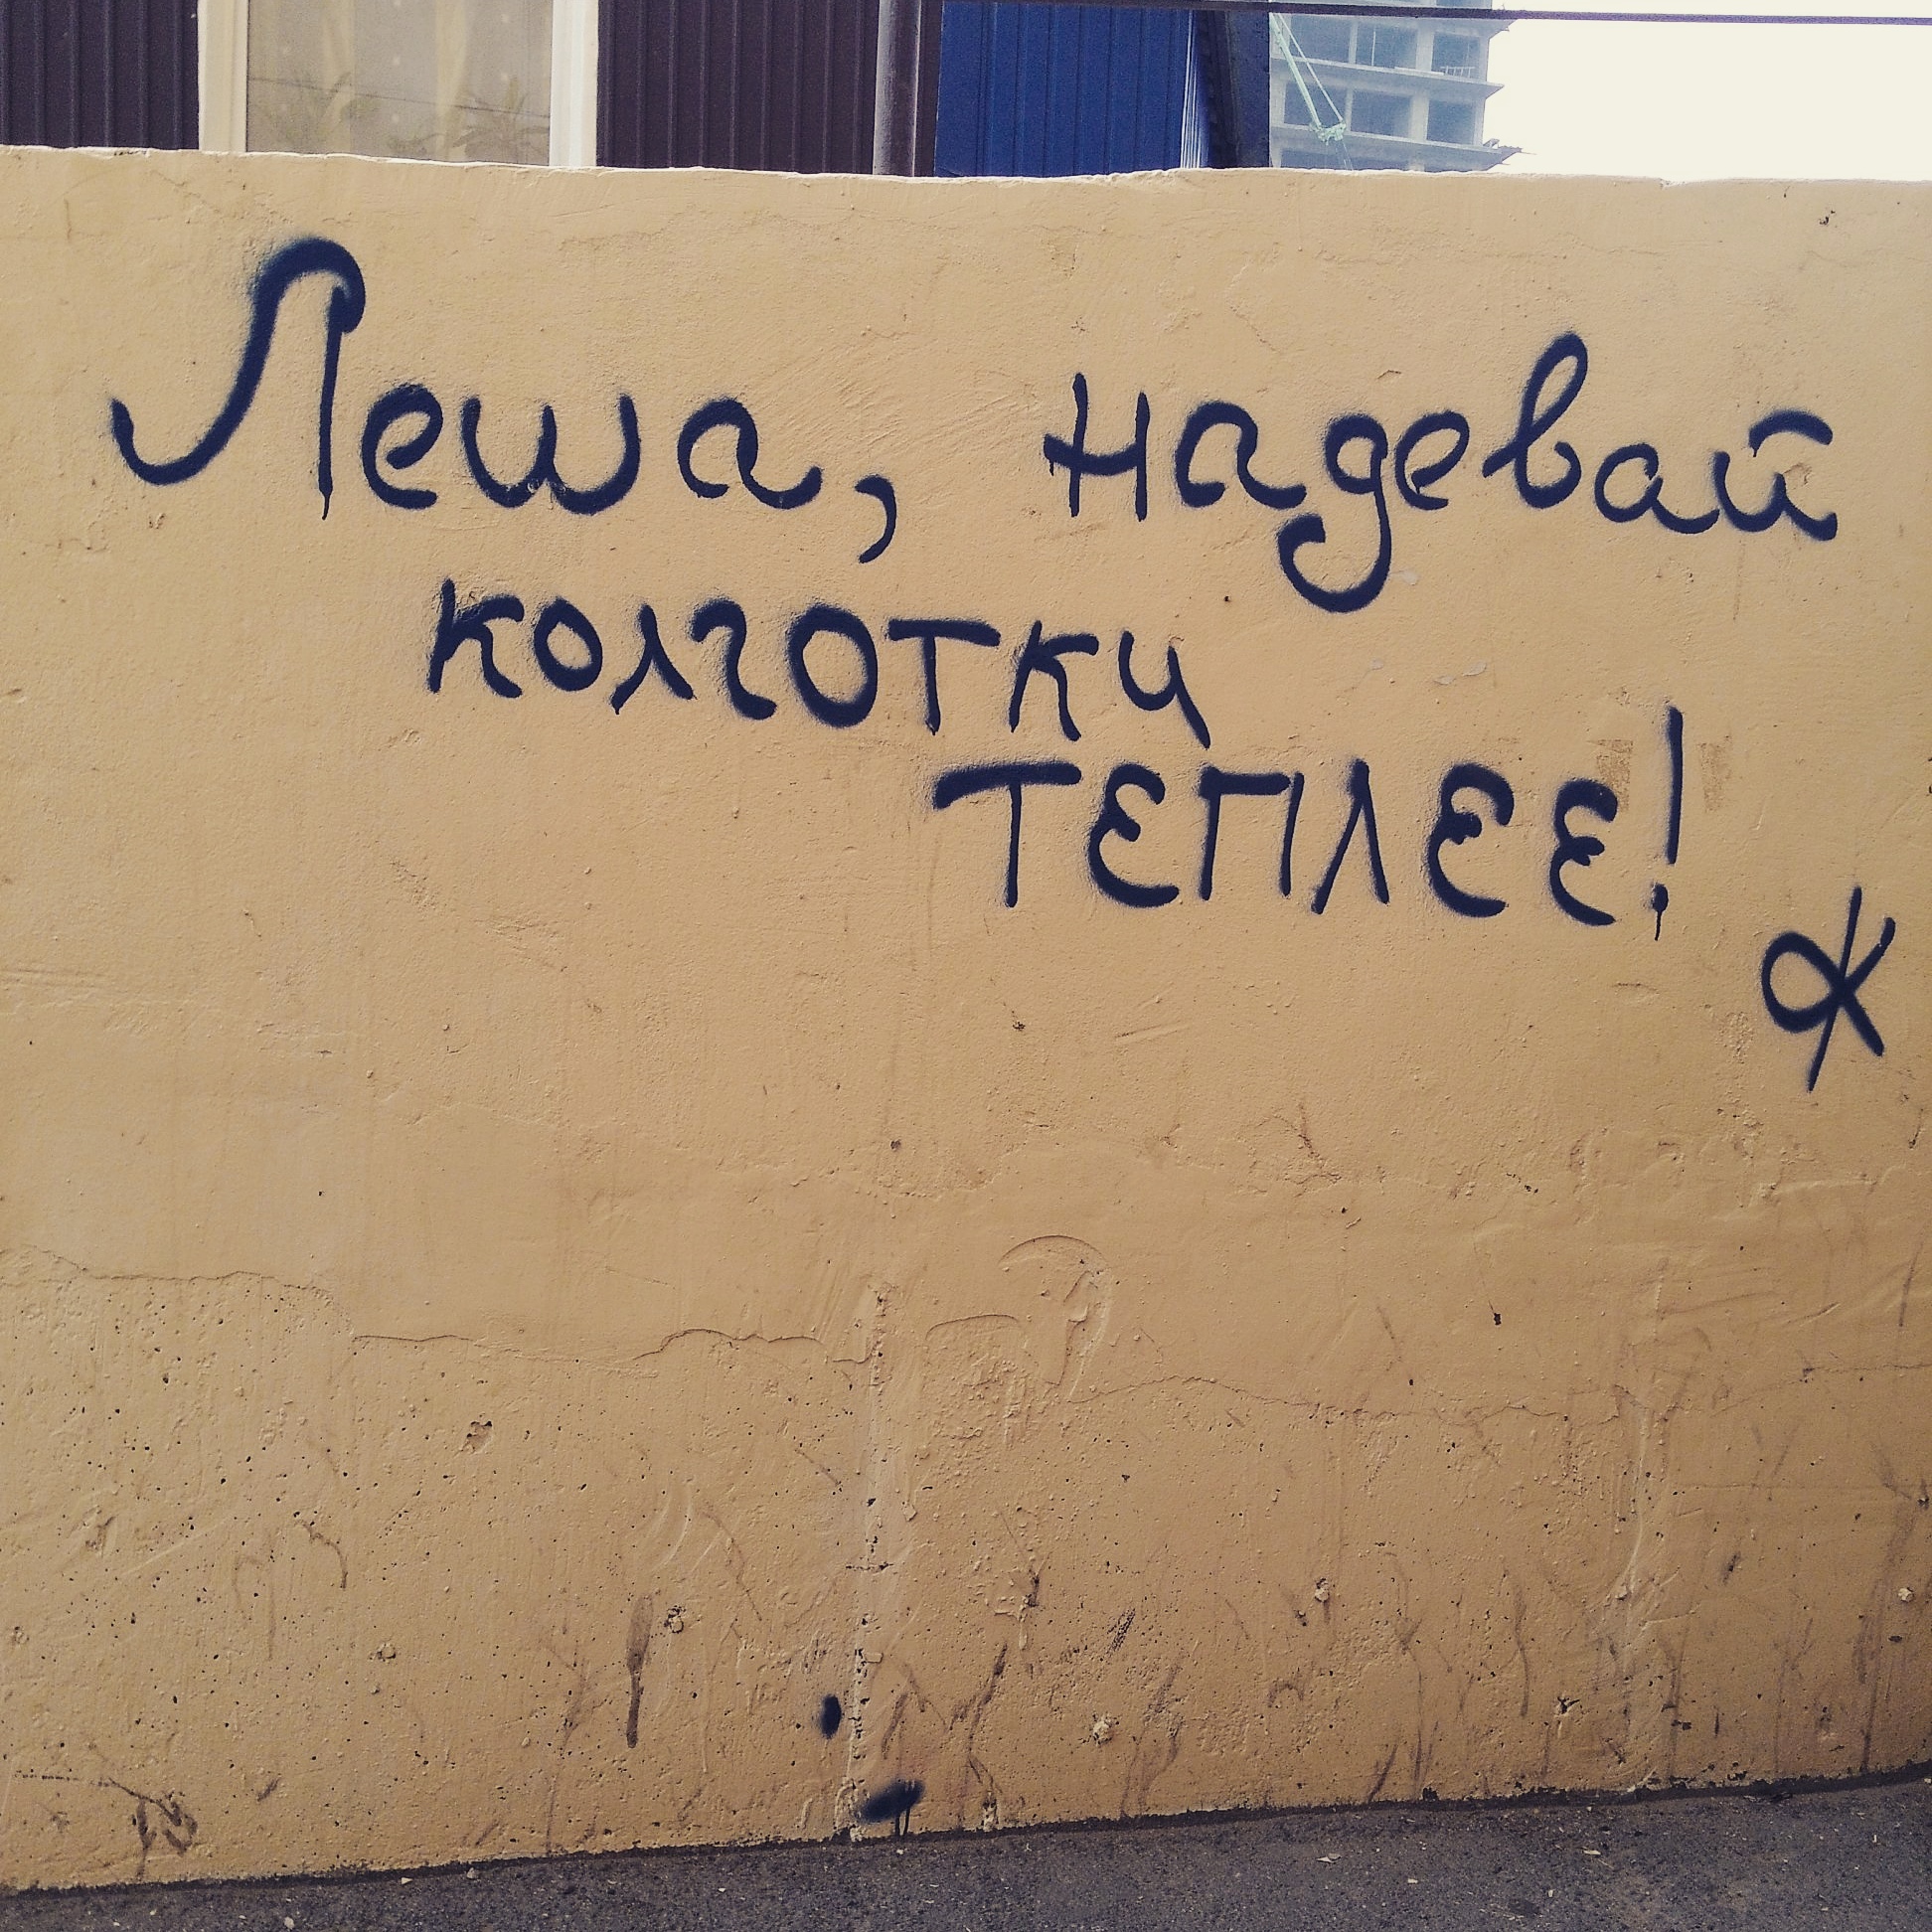 Леша, надевай
колготки
ТЕПЛЕЕ!
Ж